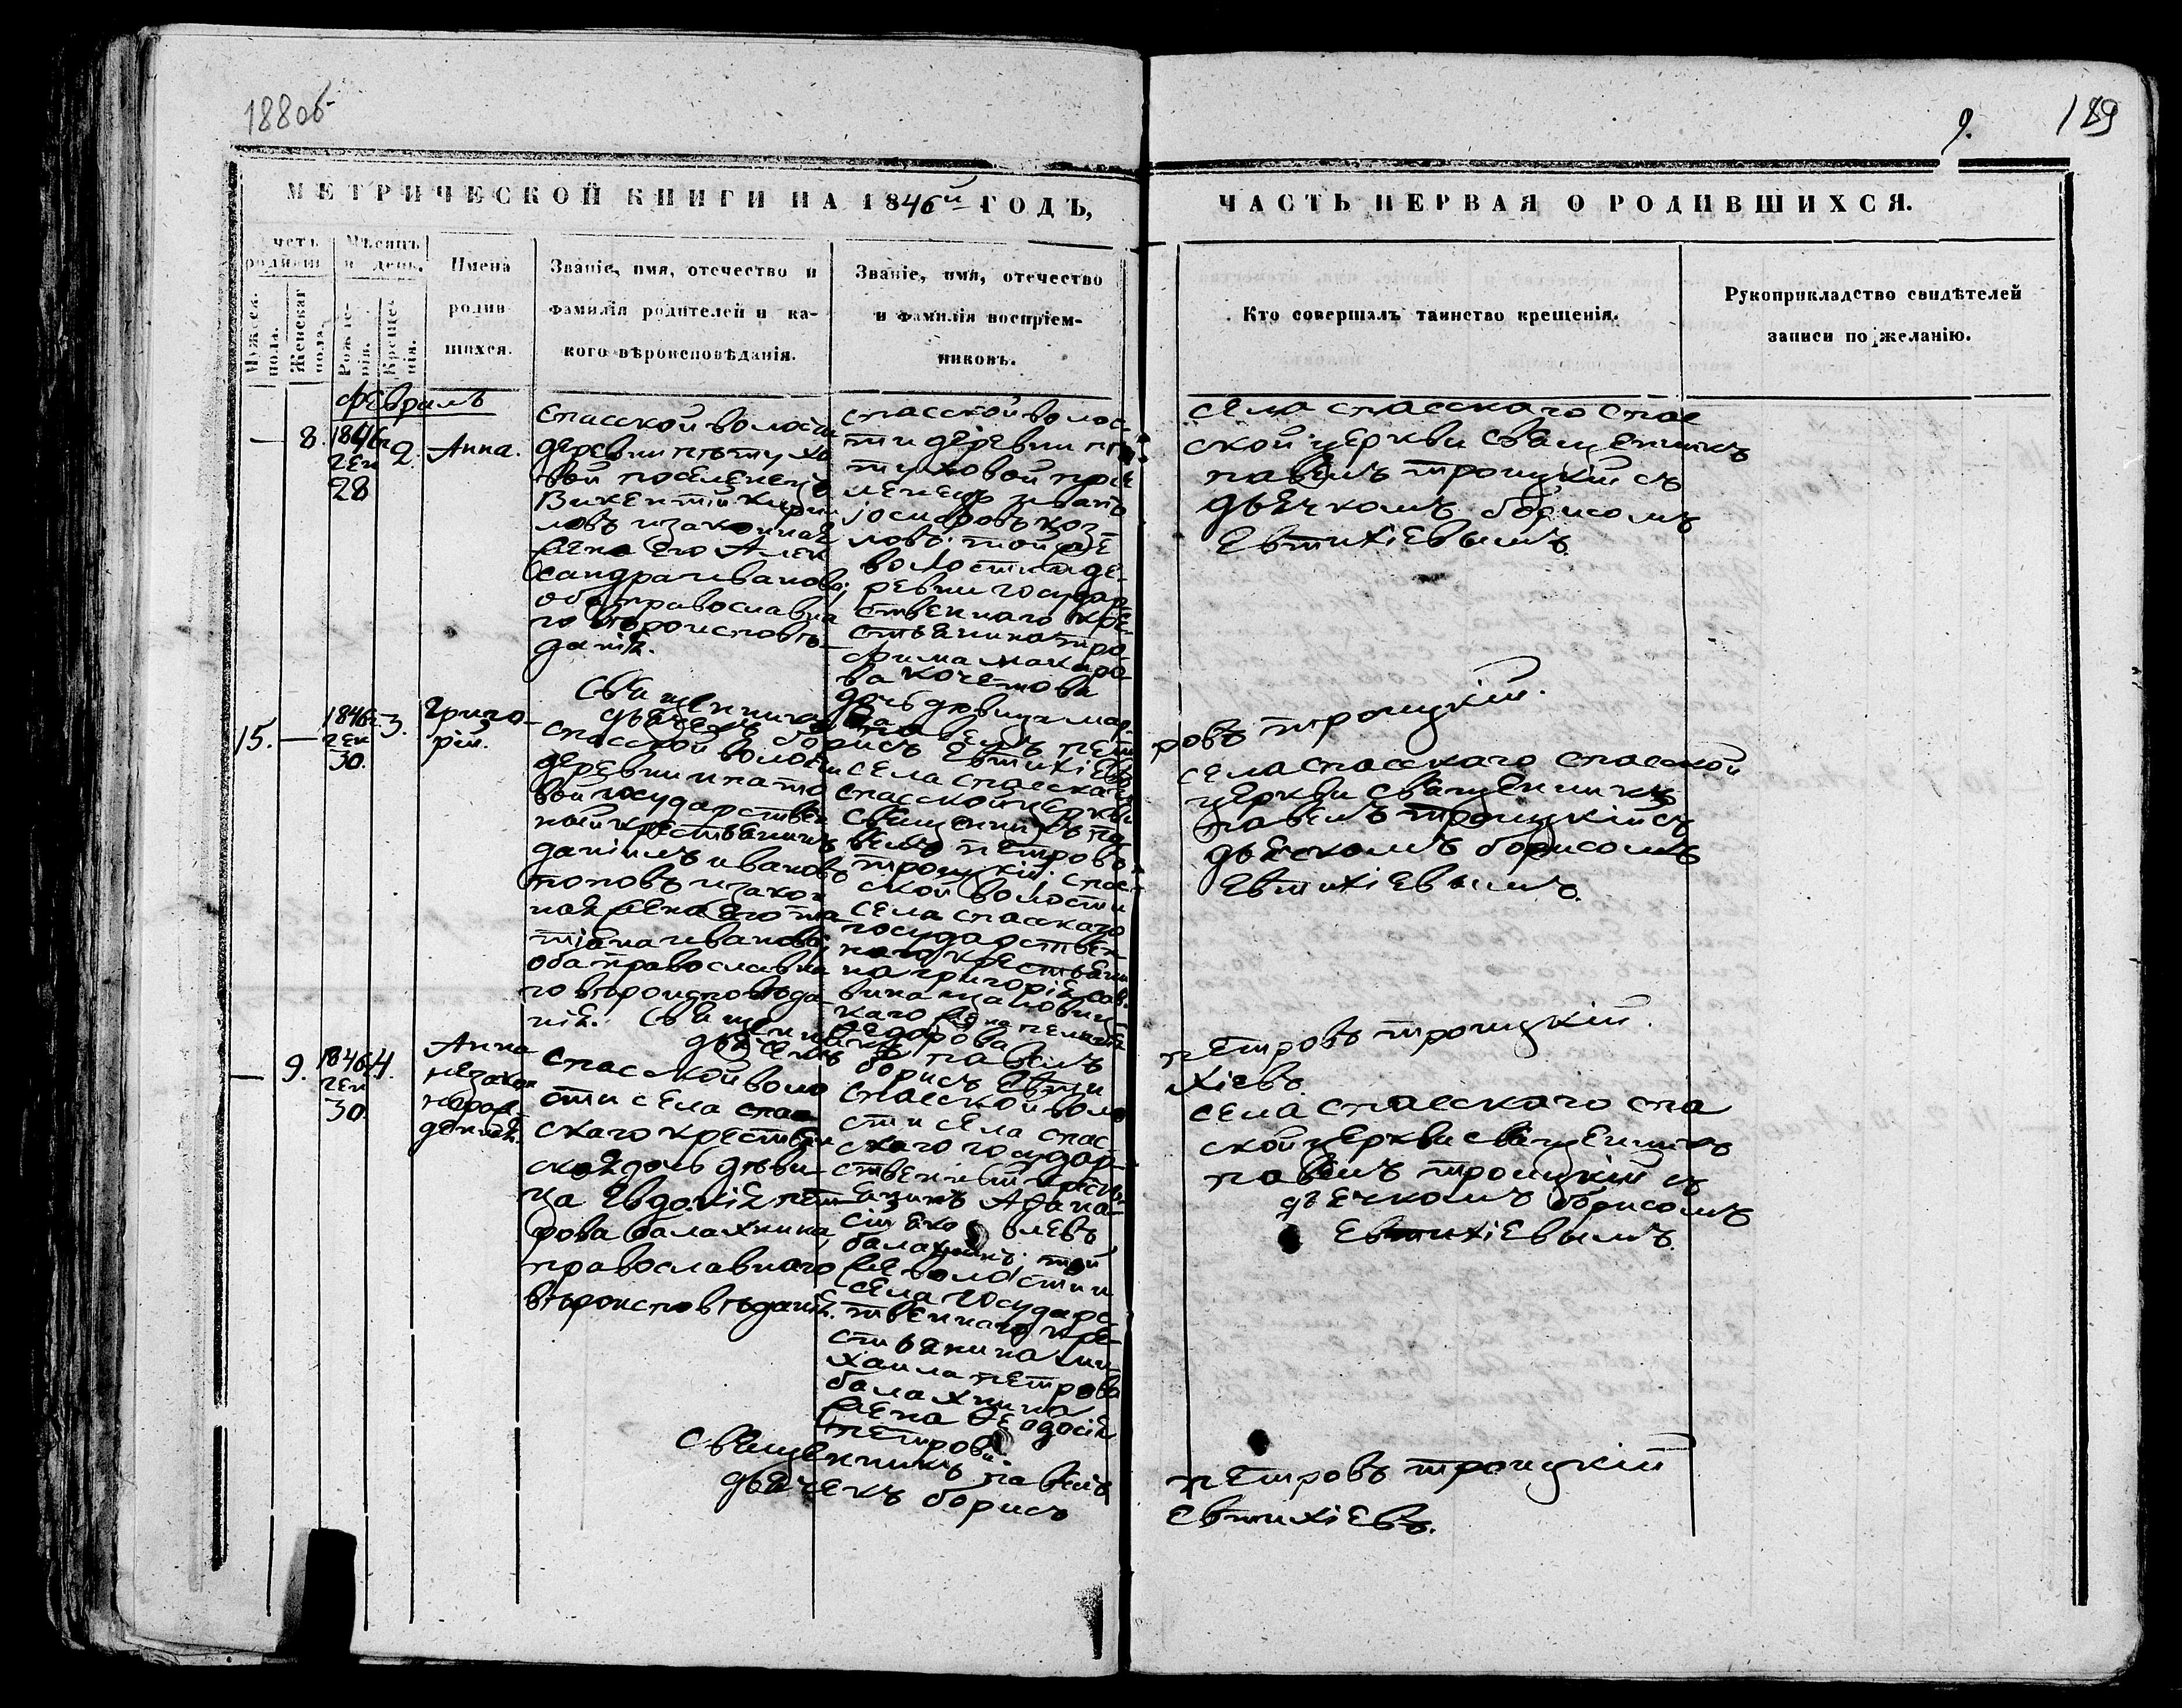 188об
9.
189
МЕТРИЧЕСКОЙ КНИГИ НА 1846й ГОДЪ,
ЧАСТЬ ПЕРВАЯ О РОДИВШИХСЯ.
четъ родивш
Мужеска. пола.
Женскаг пола.
Мѣсяцъ и день.
Рожде-нія.
Креще-нія.
Имена
родив
шихся.
Званіе, имя, отечество и
фамилія родителей и ка-
кого вѣроисповѣданія.
Званіе, имя, отечество
и фамилія воспріем-
никовъ.
Кто совершалъ таинство крещенія.
Рукоприкладство свидѣтелей
записи по желанію.
февраль
— 8.
1846
ген
28
2.
Анна.
Спасской волости
деревни пѣтухо
вой поселенецъ
Викентій Кирил
ловъ изаконная
жена его Алек
сандра иванова;
оба православна
го вѣроисповѣ-
данія.
спасской волос-
ти деревни пѣ
туховой посе
ленецъ
іосифовъ коз
ловъ; той же
волости и де-
ревни государ
ственнаго кре-
стьянина тро
фима макаро
ва кочетова
дочь дѣвица мар
села спасскаго спас
ской церкви священникъ
павелъ троицкій съ
дьячкомъ борисомъ
Евтихіевымъ.
Священникъ павелъ пет
ровъ троицкій.
дьячекъ борисъ Евтихіевъ
15. —
1846
ген
30.
3.
Григо-
рій.
Спасской волости
деревни ипато
вой государствен
ный крестьянинъ
даніилъ ивановъ
поповъ изакон
ная жена его та
тіана иванова;
оба православна
го вѣроисповѣда
нія.
села спасскаго
спасской церкви
священникъ па
велъ петровъ
троицкій; спас
ской волости
села спасскаго
государствен
наго крестьяни
на григорія сав
вина
каго жена пелагія
Ѳедорова
села спасскаго спасской
церкви священникъ
павелъ троицкій съ
дьячкомъ борисомъ
Евтихіевымъ.
Священникъ павелъ
петровъ троицкій.
дьячекъ борисъ Евти
хіевъ
— 9.
1846
ген
30.
4.
Анна
незакон
норож
денная.
Спасской воло
сти села спас
скаго крестьян
ская дочь дѣви-
ца Евдокія пет
рова балахнина
православнаго
вѣроисповѣданія.
спасской воло
сти села спас
скаго государ-
ственный кресть
янинъ Афана-
сій яковлевъ
балахнинъ; той
же волости и
села государс
твеннаго кре-
стьянина ми
хаила петрова
балахнина
жена Ѳеодосія
петрова.
села спасскаго спа
ской церкви священникъ
павелъ троицкій съ
дьячкомъ борисомъ
Евтихіевымъ.
священникъ павелъ
петровъ троицкій
дьячекъ борисъ
Евтихіевъ.